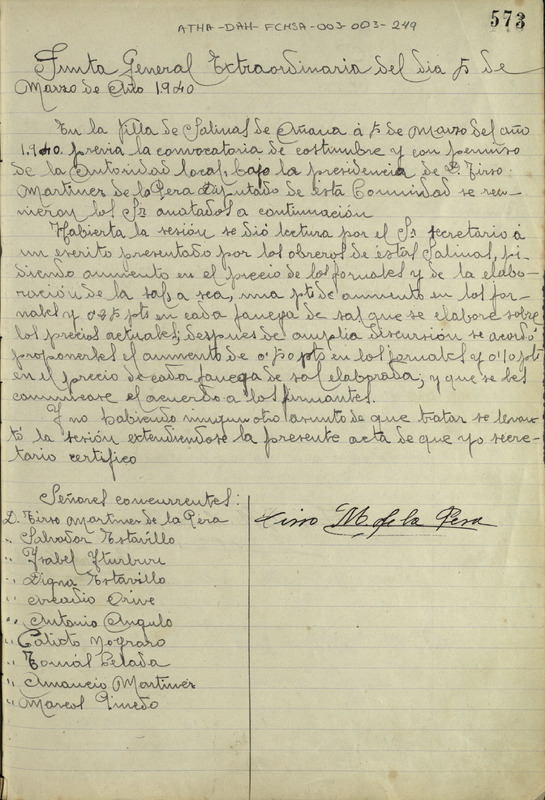 573
ATHA-DAH-FCHSA-003-003-249
Junta General Extraordinaria del dia 5 de
Marzo de Año 1940
En la Villa de Salinas de Añana á 5 de Marzo del año
1.940. previa la convocatoria de costumbre y con permiso
de la Autoridad local, bajo la presidencia de D. Tirso
Martinez de la Pera Diputado de ésta Comunidad se reu-
nieron los Srs anotados a continuación
Habierta la sesión se dió lectura por el Sr secretario á
un escrito presentado por los obreros de éstas Salinas, pi-
diendo aumento en el precio de los jornales y de la elabo-
ración de la sal o sea, una pta de aumento en los jor-
nales y 0'25 pts en cada fanega de sal que se elabore sobre
los precios actuales; despues de amplia discursión se acordó
proponerles el aumento de 0'50 pts en los jornales y 0'10 pts
en el precio de cada fanega de sal elaborada; y que se les
comunicase el acuerdo a los firmantes.
Y no habiendo ningun otro asunto de que tratar se levan-
tó la sesión extendiendose la presente acta de que yo secre-
tario certifico
Señores concurrentes:
D. Tirso Martinez de la Pera
" Salvador Estavillo
" Ysabel Yturburu
" Digna Estavillo
" Arcadio Orive
" Antonio Angulo
" Calisto Nograro
" Tomás Celada
" Amancio Martinez
" Marcos Pinedo
Tirso M. de la Pera